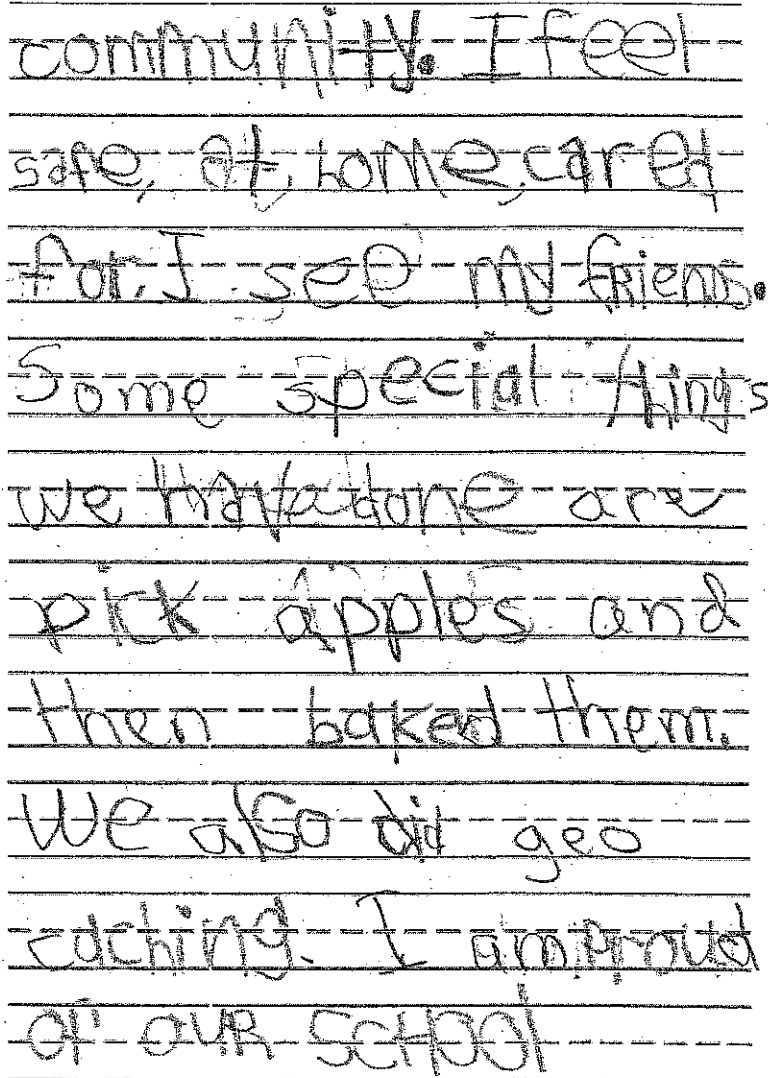 community. I feel
safe, at home, cared
for. I see my friends.
Some special things
we have done are
pick apples and
then baked them.
We also did geo
caching. I am proud
of our SCHOOl